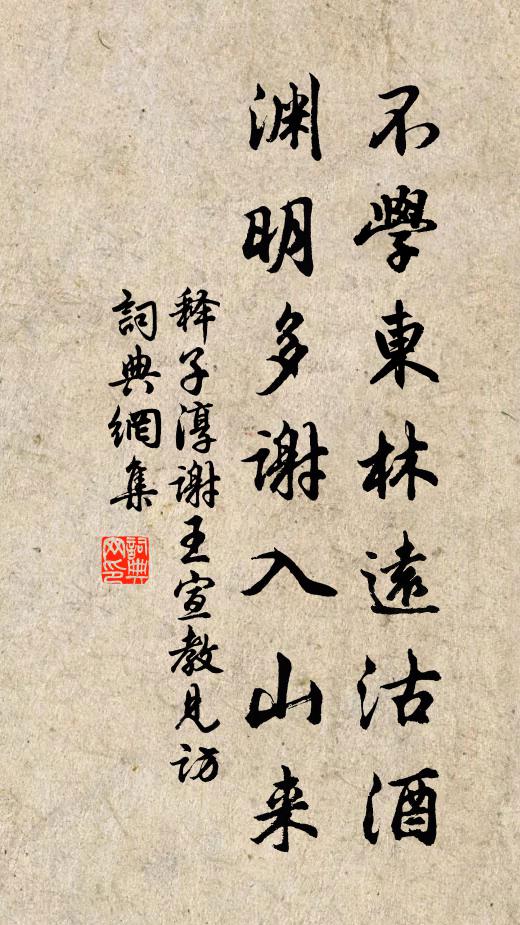 不學東林遠沽酒
渊明多谢入山来
释子淳谢王宣教见访
詞典網集
詞典网印